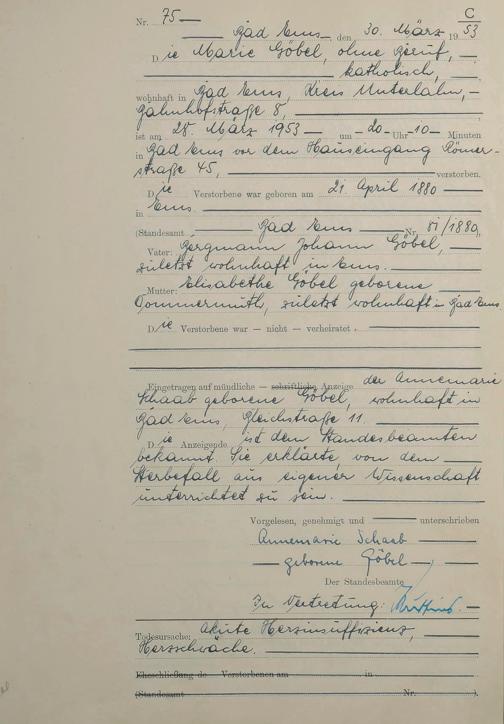 C
Nr. 75
Bad Ems, den 30. März 1953
Die Marie Göbel, ohne Beruf,
katholisch,
wohnhaft in Bad Ems, Kreis Unterlahn,
Bahnhofstraße 8,
ist am 28. März 1953 um 20 Uhr 10 Minuten
in Bad Ems vor dem Hauseingang Römer-
straße 45, verstorben.
Die Verstorbene war geboren am 21. April 1880
in Ems
(Standesamt Bad Ems Nr. 81/1880)
Vater: Bergmann Johann Göbel,
zuletzt wohnhaft in Ems.
Mutter: Elisabethe Göbel geborene
Dommermuth, zuletzt wohnhaft in Bad Ems
Die Verstorbene war — nicht — verheiratet.
Eingetragen auf mündliche — schriftliche Anzeige der Annemarie
Schaab geborene Göbel, wohnhaft in
Bad Ems, Bleichstraße 11.
Die Anzeigende ist dem Standesbeamten
bekannt. Sie erklärte von dem
Sterbefall aus eigener Wissenschaft
unterrichtet zu sein.
Vorgelesen, genehmigt und unterschrieben
Annemarie Schaab
geborene Göbel
Der Standesbeamte
In Vertretung:
Todesursache: Akute Herzinsuffizienz,
Herzschwäche.
Eheschließung de Verstorbenen am in
(Standesamt Nr. ).